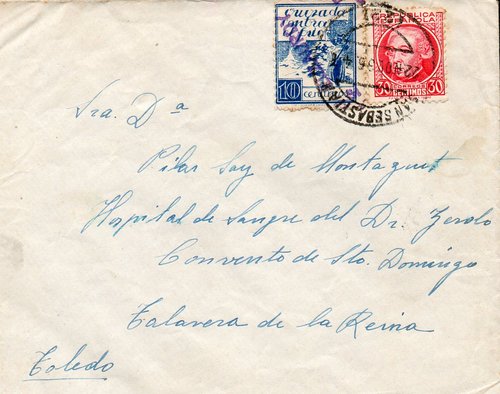 Cruzada
contra
el frío
10 CENTIMOS
REPUBLICA
ESPAÑOLA
CORREOS
30 CENTIMOS 30
SAN SEBASTIAN
Sra. Dª
Pilar Say de Montaguet
Hospital de Sangre del Dr. Zerolo
Convento de Sto. Domingo
Talavera de la Reina
Toledo